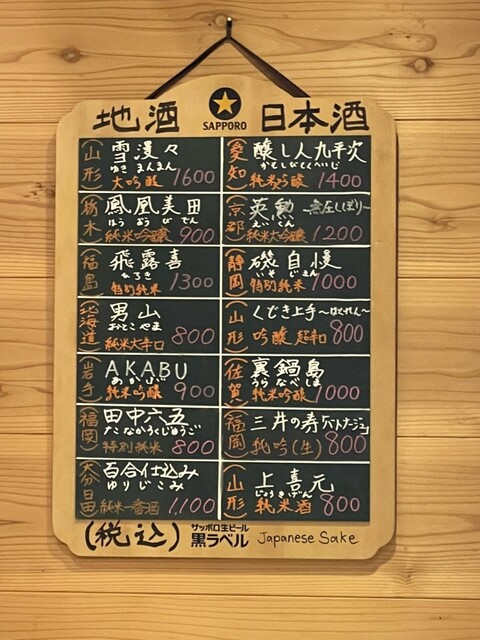 地酒 SAPPORO 日本酒
(山形) 雪漫々
ゆき まんまん
大吟醸 1600
(栃木) 鳳凰美田
ほう おう び でん
純米吟醸 900
(福島) 飛露喜
ひろき
特別純米 1300
(北海道) 男山
おとこやま
純米大辛口 800
(岩手) AKABU
あかぶ
純米吟醸 900
(福岡) 田中六五
たなかろくじゅうご
特別純米 800
(大分日田) 百合仕込み
ゆりじこみ
純米一番酒 1,100
(愛知) 醸し人九平次
かもしびとくへいじ
純米吟醸 1400
(京都) 英勲 〜無圧しぼり〜
えいくん
純米大吟醸 1200
(静岡) 磯自慢
いそじまん
特別純米 1000
(山形) くどき上手〜ばくれん〜
吟醸 超辛 800
(佐賀) 裏鍋島
うらなべしま
純米吟醸 1000
(福岡) 三井の寿「バトナージュ」
純吟(生) 800
(山形) 上喜元
じょうきげん
純米酒 800
(税込) サッポロ生ビール
黒ラベル Japanese Sake